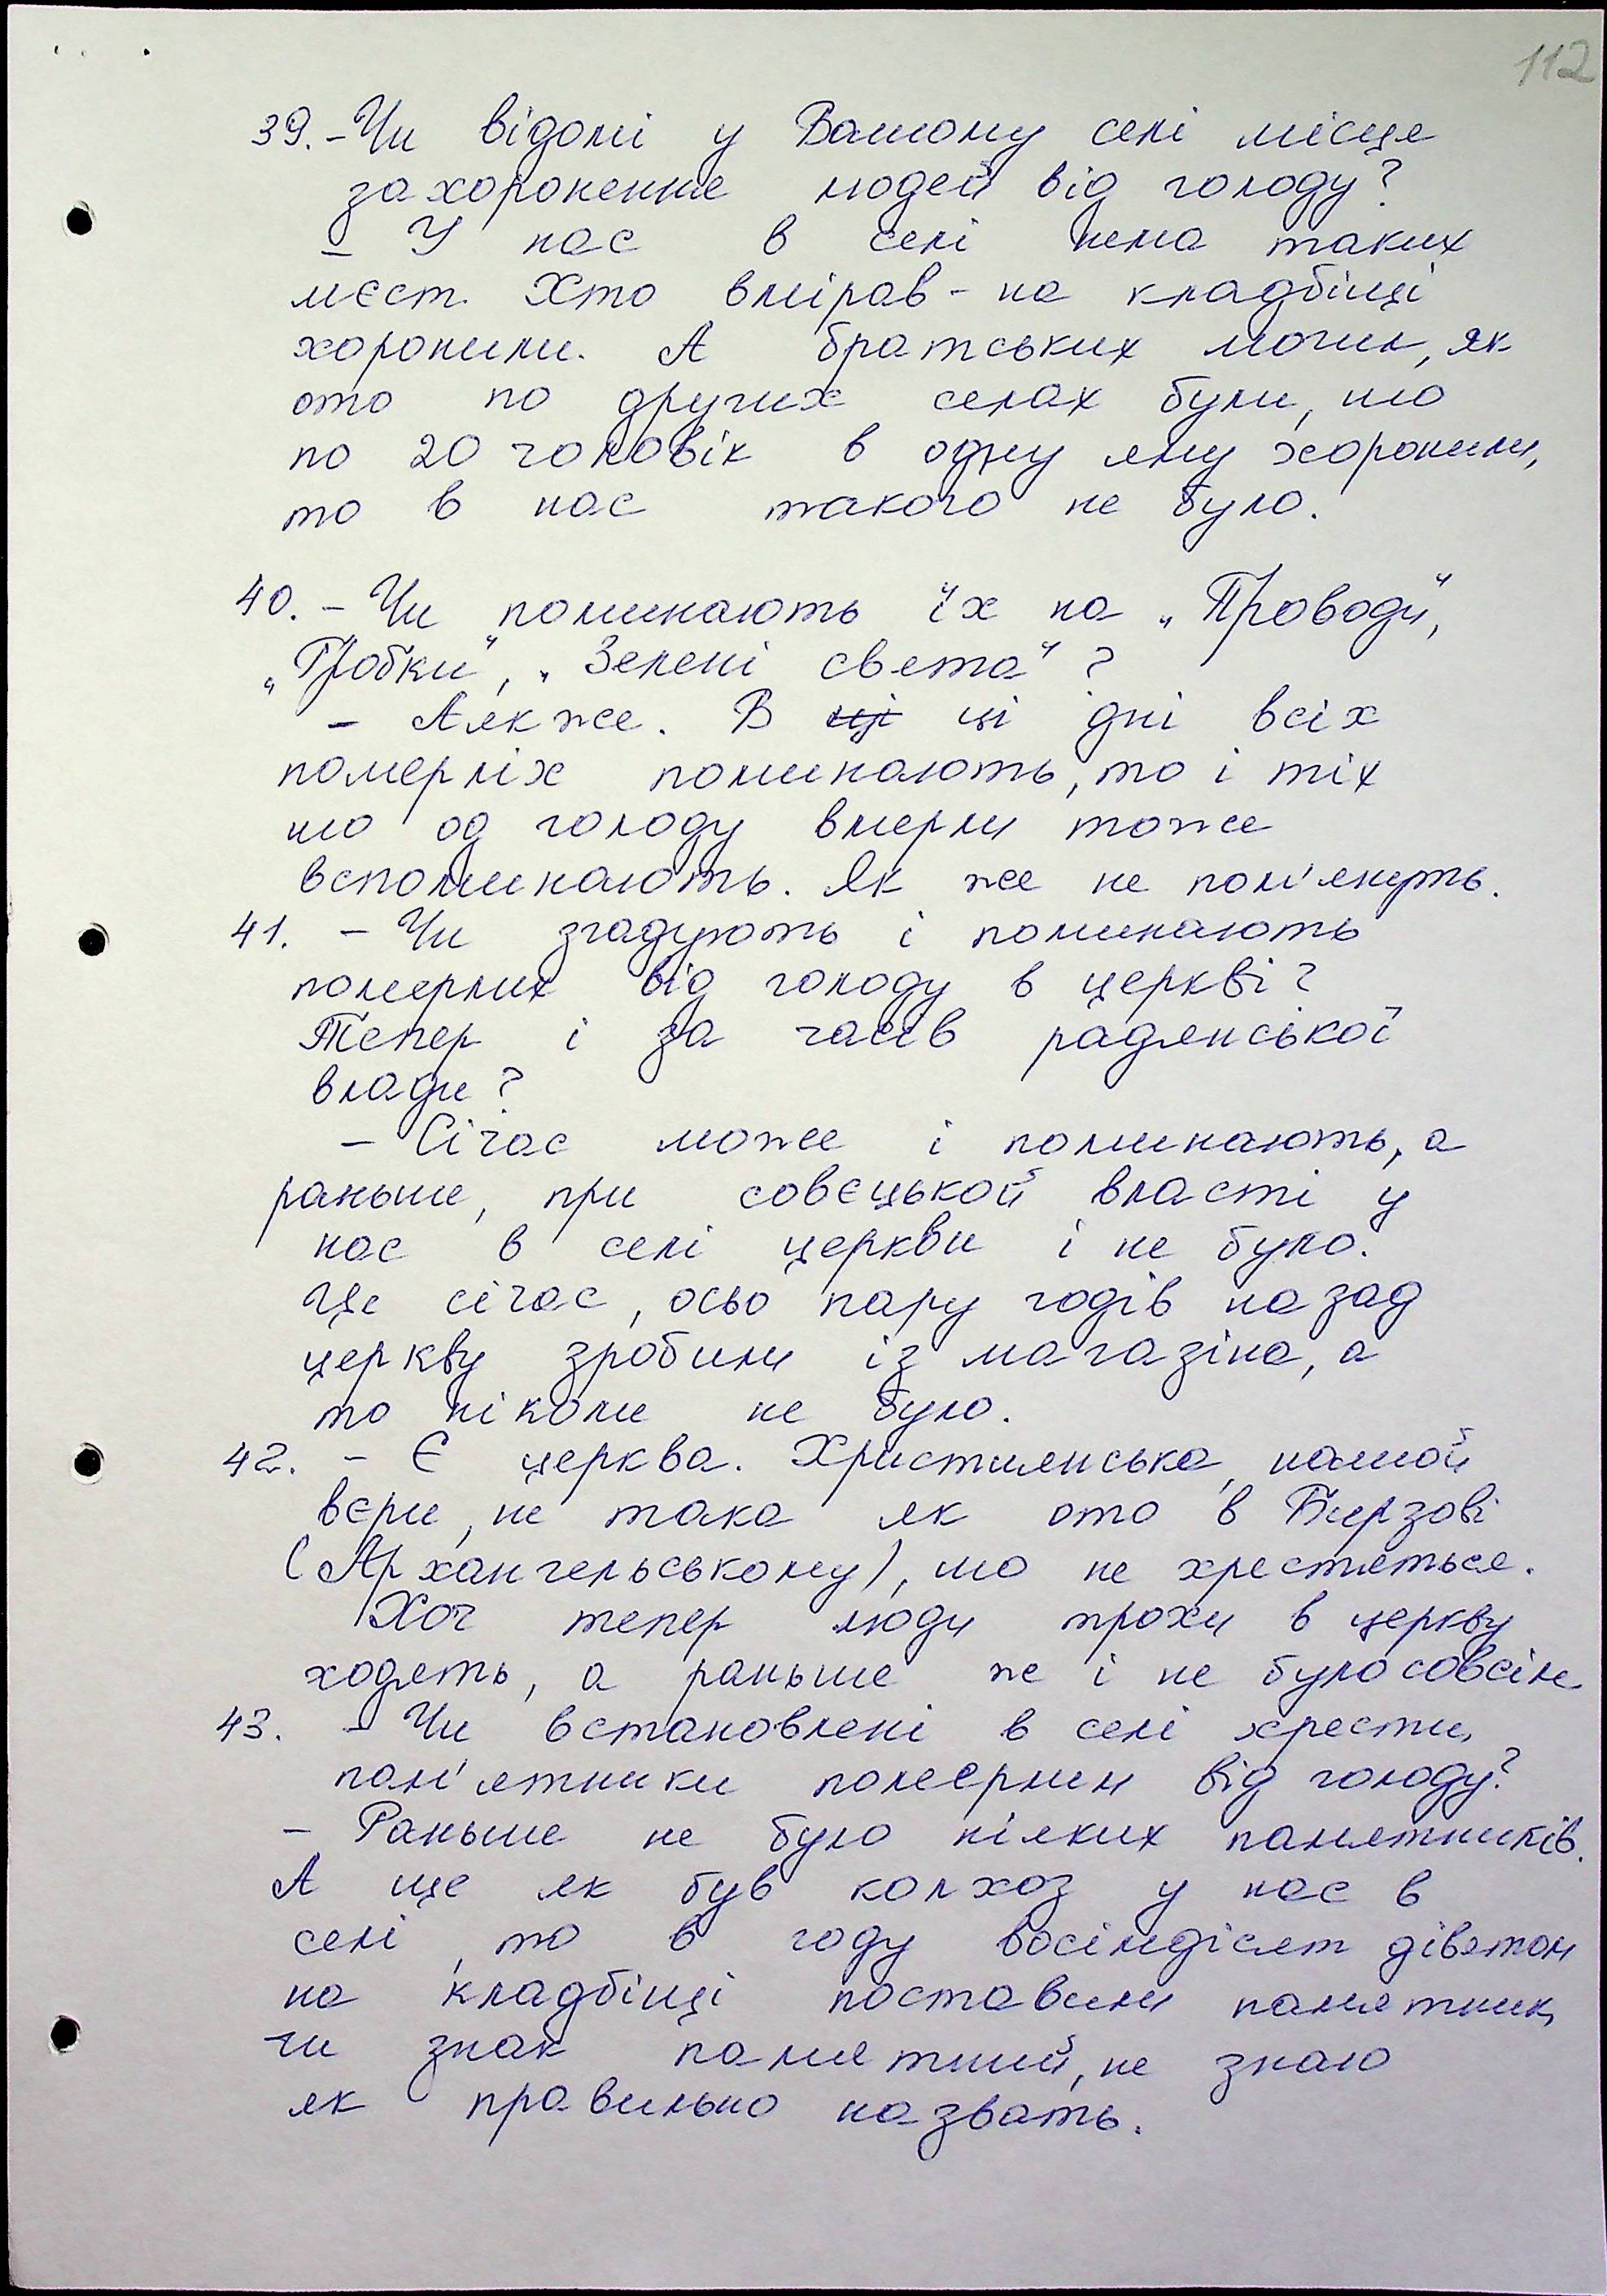 112
39. - Чи відомі у Вашому селі місця
захоронення людей від голоду?
- У нас в селі нема таких
мєст. Хто вмірав - на кладбіщі
хоронили. А братських могил, як
ото по других селах були, шо
по 20 чоловік в одну яму хоронили,
то в нас такого не було.
40. - Чи поминають їх на „Проводи",
„Гробки", „Зелені свята"?
- Аякже. В ці ці дні всіх
померліх поминають, то і тіх
шо од голоду вмерли тоже
вспоминають. Як же не пом'януть.
41. - Чи згадують і поминають
померлих від голоду в церкві?
Тепер і за часів радянської
влади?
- Січас може і поминають, а
раньше, при совєцькой власті у
нас в селі церкви і не було.
Це січас, осьо пару годів назад
церкву зробили із магазіна, а
то ніколи не було.
42. - Є церква. Християнська, нашой
вєри, не така як ото в Бирзові
(Архангельському), шо не хрестяться.
Хоч тепер люди трохи в церкву
ходять, а раньше же і не було совсім
43. - Чи встановлені в селі хрести,
пам'ятники померлим від голоду?
- Раньше не було ніяких памятників.
А ще як був колхоз у нас в
селі, то в году восімдісят дівятом
на кладбіщі поставили памятник,
чи знак памятний, не знаю
як правильно назвать.